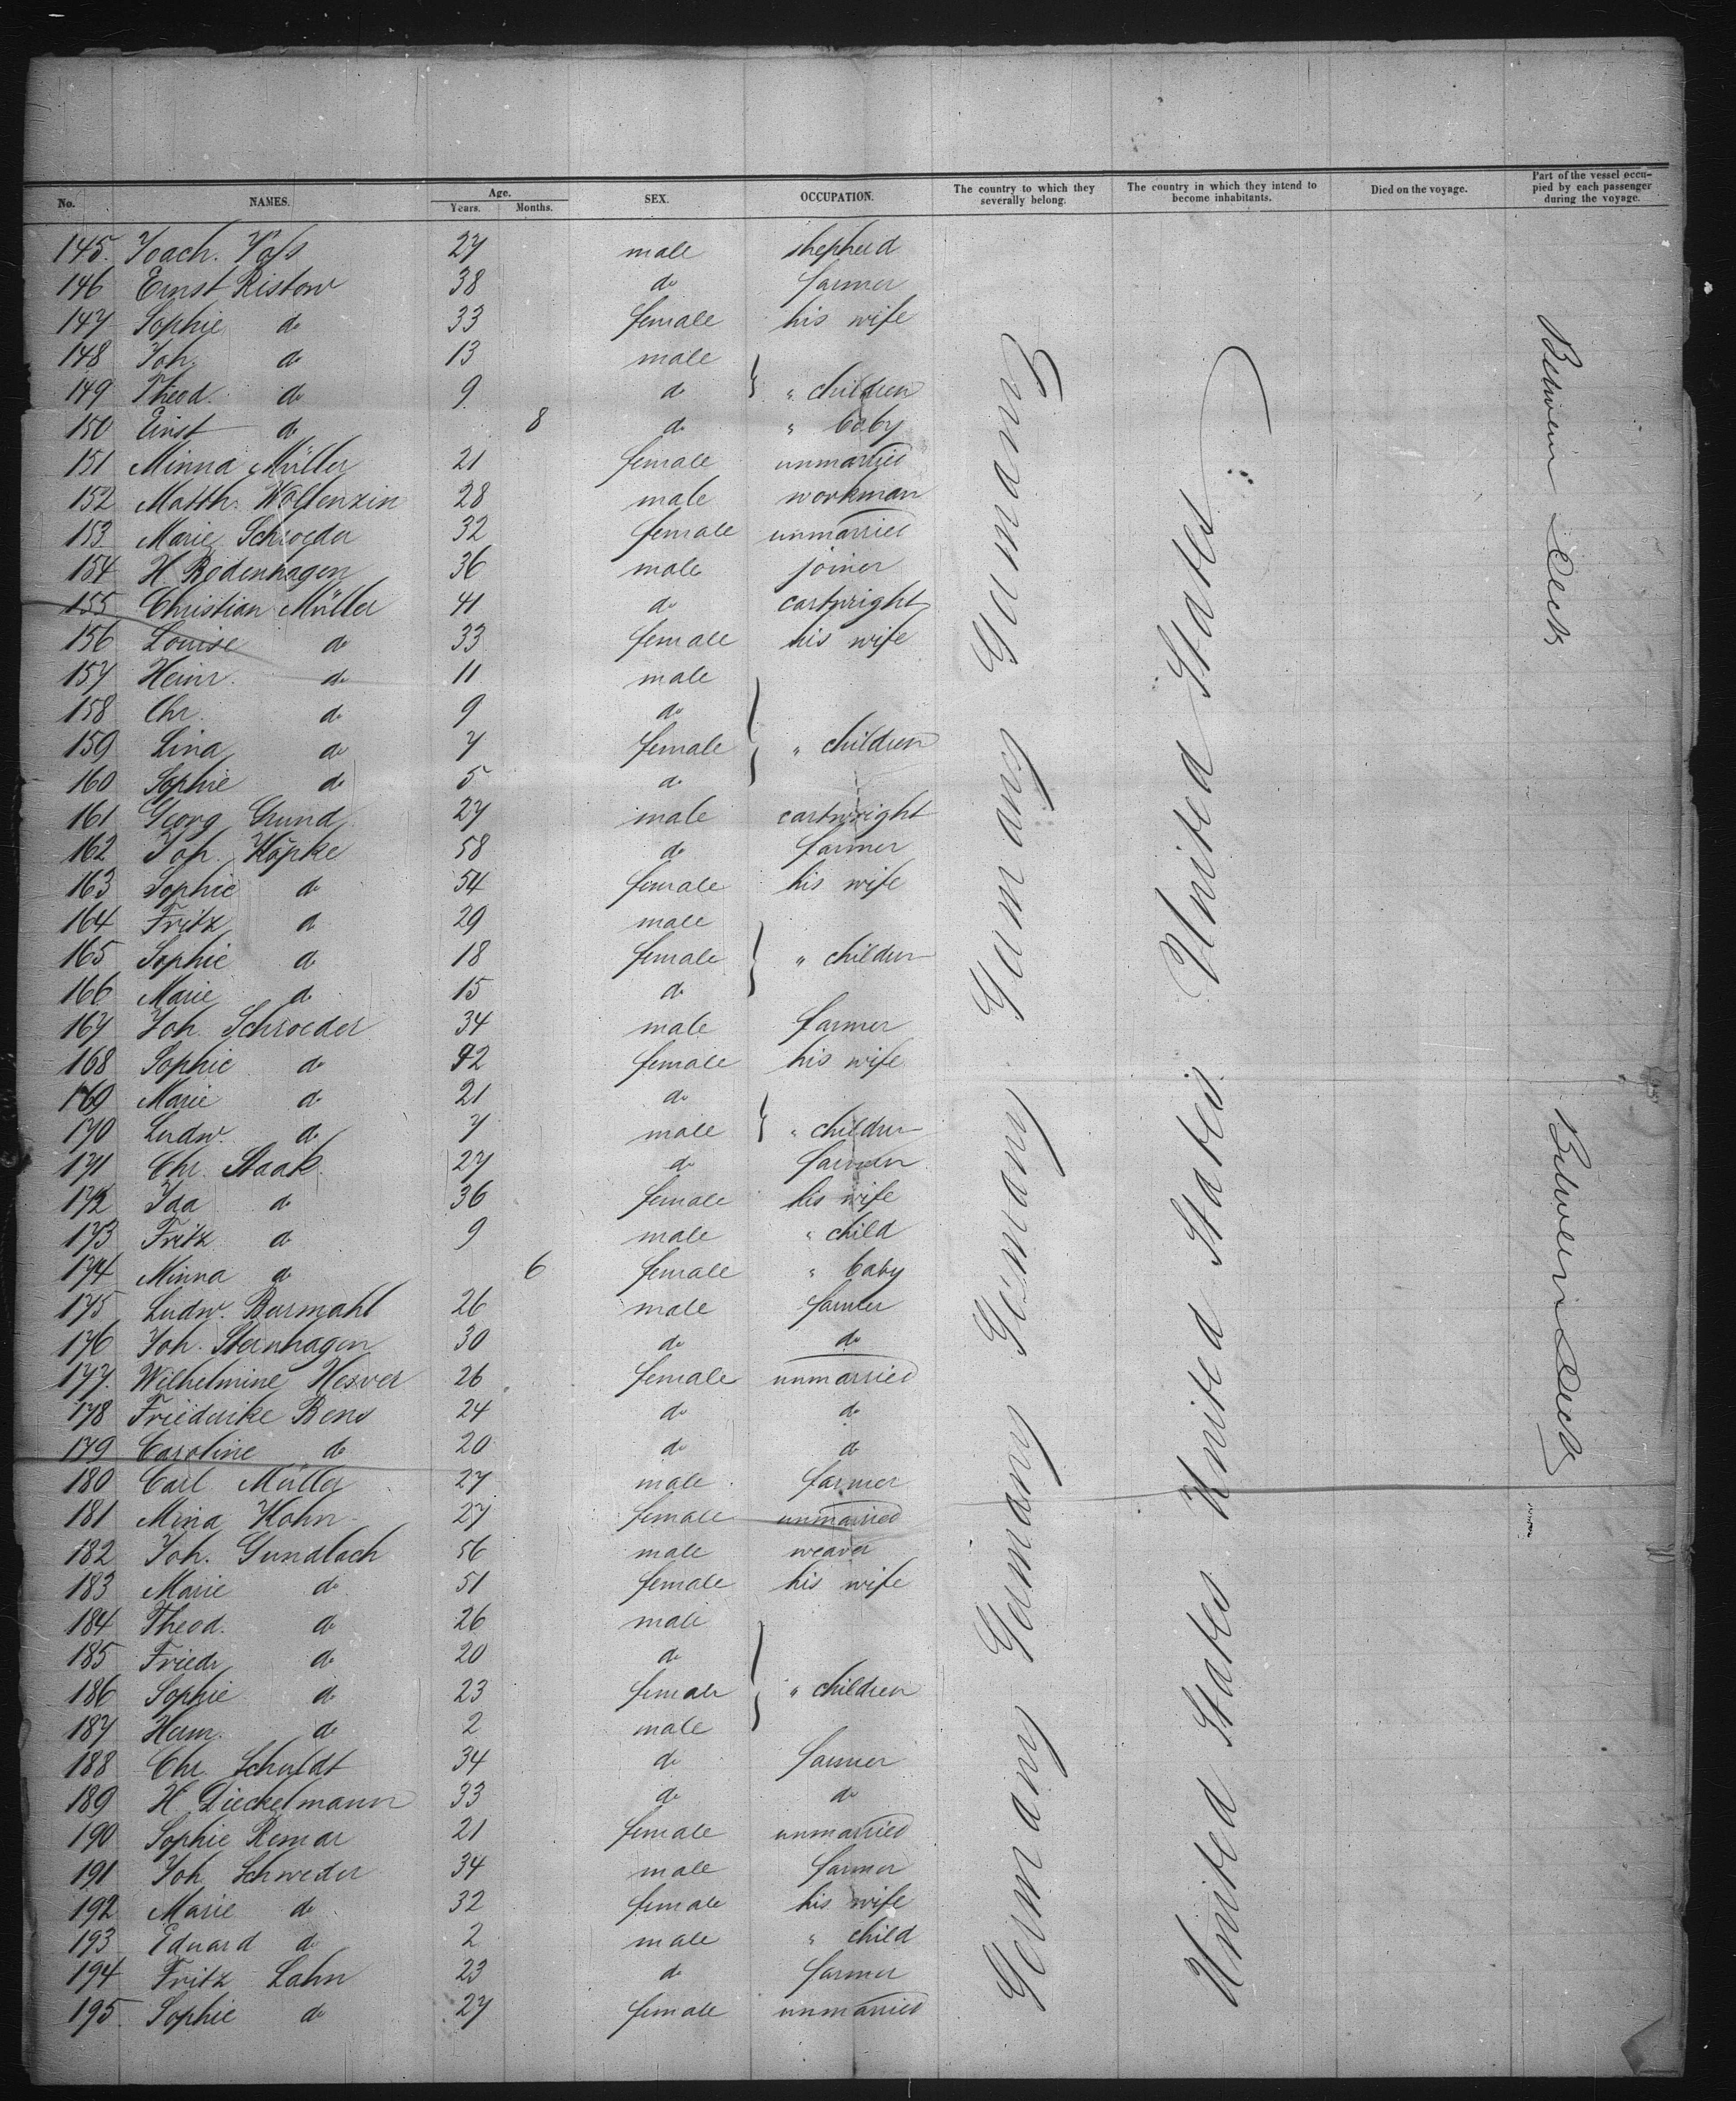 No. NAMES. Age. Years. Months. SEX. OCCUPATION. The country to which they severally belong. The country in which they intend to become inhabitants. Died on the voyage. Part of the vessel occupied by each passenger during the voyage.
145. Joach. Voss 27 male shepherd
146 Ernst Ristow 38 do farmer
147 Sophie do 33 female his wife
148 Joh. do 13 male
149 Theod. do 9 do " children
150 Ernst do 8 do " baby
151 Minna Müller 21 female unmarried
152 Matth. Woltenzin 28 male workman
153 Marie Schroeder 32 female unmarried
154 H. Bodenhagen 36 male joiner
155 Christian Müller 41 do cartwright
156 Louise do 33 female his wife
157 Heinr. do 11 male
158 Chr. do 9 do
159 Lina do 7 female " children
160 Sophie do 5 do
161 Georg Grund 27 male cartwright
162 Joh. Köpke 58 do farmer
163 Sophie do 54 female his wife
164 Fritz do 29 male
165 Sophie do 18 female " children
166 Marie do 15 do
167 Joh. Schroeder 34 male farmer
168 Sophie do 42 female his wife
169 Marie do 21 do
170 Ludw. do 7 male " children
171 Chr. Staak 27 do farmer
172 Ida do 36 female his wife
173 Fritz do 9 male " child
174 Minna do 6 female " baby
175 Ludw. Burmahl 26 male farmer
176 Joh. Steinhagen 30 do do
177. Wilhelmine 26 female unmarried
178 Friederike Bens 24 do do
179 Caroline do 20 do do
180 Carl Müller 27 male farmer
181 Mina Hohn 27 female unmarried
182 Joh. Gundlach 56 male weaver
183 Marie do 51 female his wife
184 Theod. do 26 male
185 Friedr do 20 do
186 Sophie do 23 female " children
187 Herm. do 2 male
188 Chr. Schuldt 34 do farmer
189 H. Dieckelmann 33 do do
190 Sophie Remar 21 female unmarried
191 Joh. Schweder 34 male farmer
192 Marie do 32 female his wife
193 Eduard do 2 male " child
194 Fritz Lahn 23 do farmer
195. Sophie do 27 female unmarried
Germany Germany Germany Germany Germany Germany
United States United States United States United States
Between Deck
Between Deck